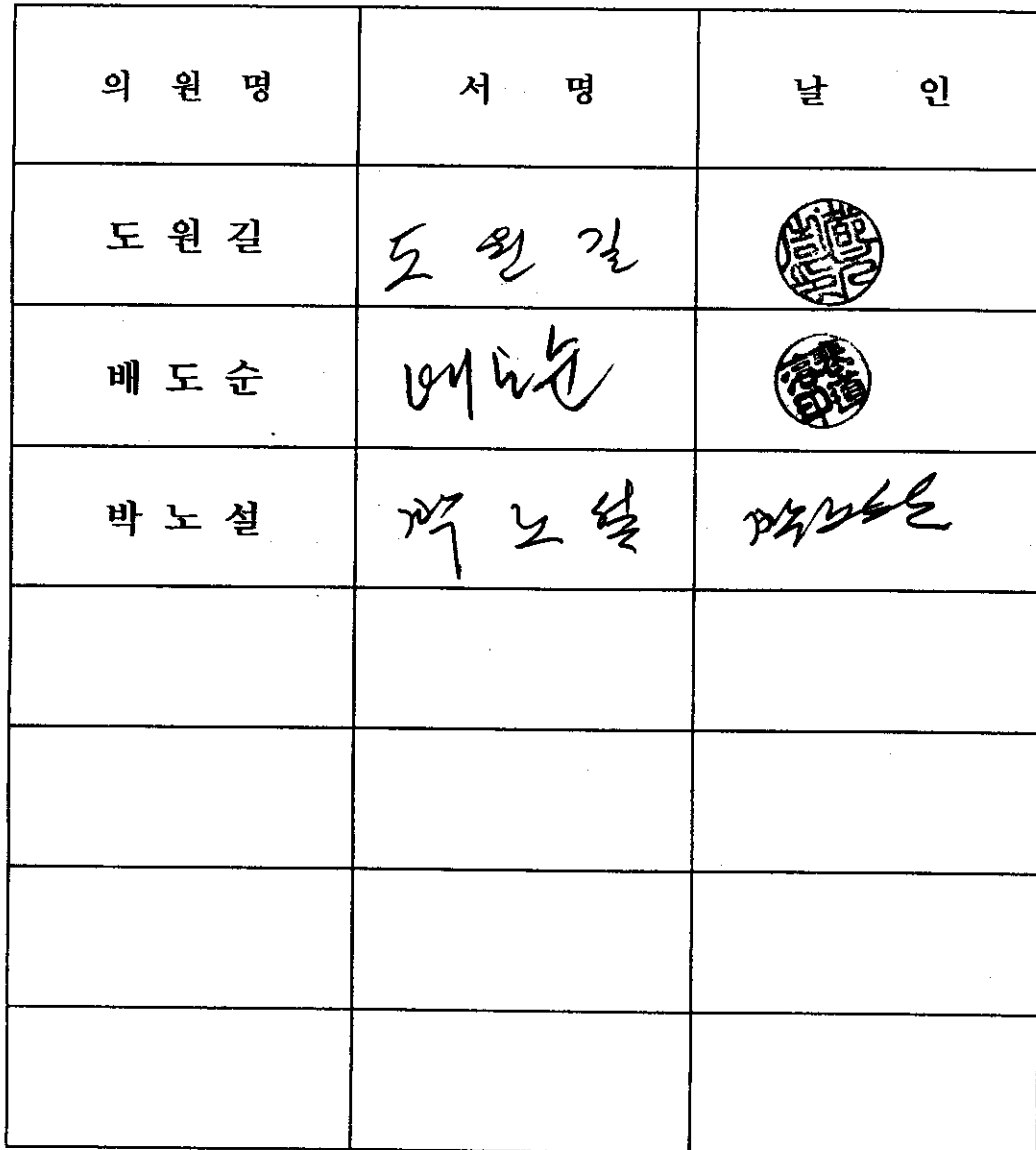 의 원 명 서 명 날 인
도 원 길 도 원 길
배 도 순 배도순 裵道淳印
박 노 설 박 노 설 박노설